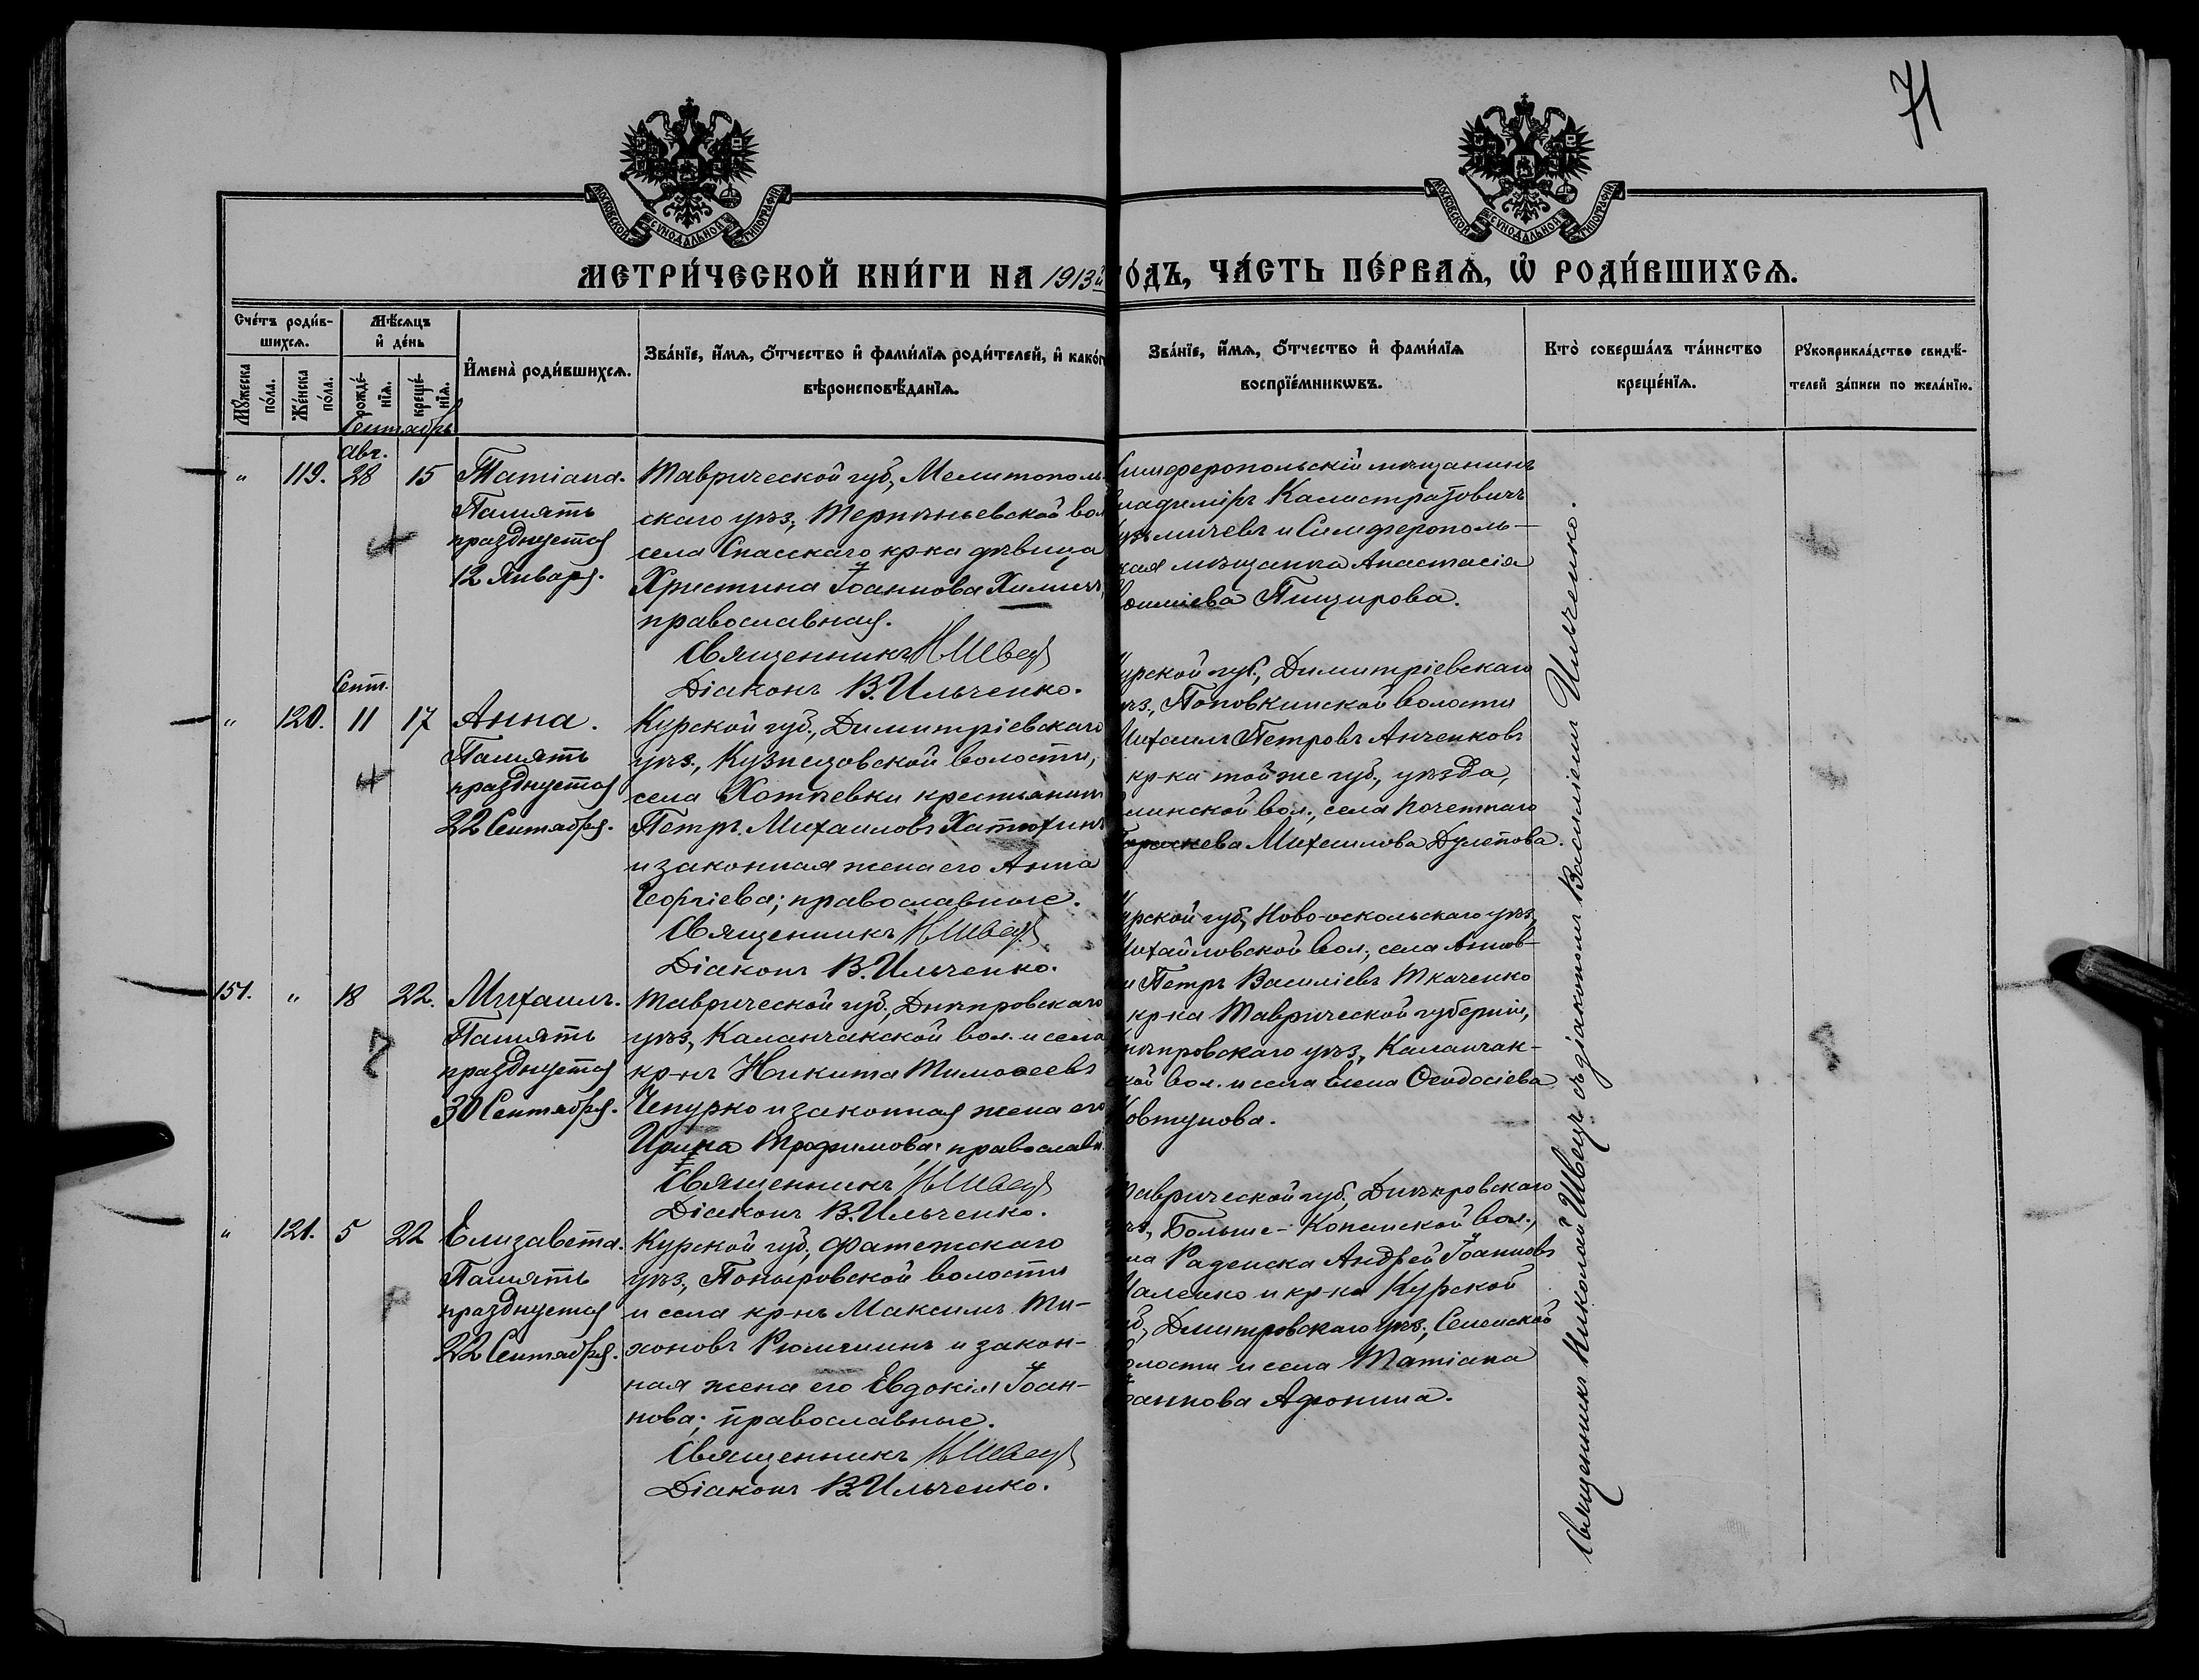 71
МОСКОВСКОЙ СѴНОДАЛЬНОЙ ТИПОГРАФІИ
МОСКОВСКОЙ СѴНОДАЛЬНОЙ ТИПОГРАФІИ
МЕТРИ́ЧЕСКОЙ КНИ́ГИ НА 1913й
О́ДЪ, ЧА́СТЬ ПЕ́РВАѦ, Ѡ҆ РОДИ́ВШИХСѦ.
Сче́тъ роди́в-
шихсѧ.
Мꙋ́жеска по́ла.
Же́нска по́ла.
Мѣ́сѧцъ
и҆ де́нь
рожде́-
нїѧ.
креще́-
нїѧ.
И҆мена̀ роди́вшихсѧ.
Зва́нїе, и҆́мѧ, ѻ҆́тчество и҆ фами́лїѧ роди́телей, и҆ како́г
вѣроисповѣ́данїѧ.
Зва́нїе, и҆́мѧ, ѻ҆́тчество и҆ фами́лїѧ
воспрїе́мникѡвъ.
Кто̀ соверша́лъ та́инство
креще́нїѧ.
Рꙋкоприкла́дство свидѣ́-
телей за́писи по жела́нїю.
Сентябрь
Авг.
" 119. 28 15 Татіана.
Память
празднуется
12 Января.
Таврической губ., Мелитополь-
скаго уѣз., Терпѣньевской вол
села Спасскаго кр-ка дѣвица
Христина Іоаннова
православная.
Священникъ Н Швец
Діаконъ В. Ильченко.
Симферопольскій мѣщанинъ
Владиміръ Калистратовичъ
и Симферополь-
ская мѣщанка Анастасія
Пищирова.
Сент.
" 120. 11 17 Анна.
Память
празднуется
22 Сентября.
Курской губ., Димитріевскаго
уѣз., Кузнецовской волости,
села Хотѣевки крестьянинъ
Петръ Михаиловъ Хатюхинъ
и законная жена его Анна
Георгіева; православные.
Священникъ Н Швец
Діаконъ В. Ильченко.
Курской губ., Димитріевскаго
уѣз., Поповкинской волости
Михаилъ Петровъ Анченковъ
кр-ка той же губ., уѣзда,
вол., села Почетнаго
Михаилова Дулепова.
151. " 18 22. Михаилъ.
Память
празднуется
30 Сентября.
Таврической губ., Днѣпровскаго
уѣз., Каланчакской вол. и села
кр-нъ Никита Тимоѳеевъ
Чепурко и законная жена его
Ирина Трофимова; православн.
Священникъ Н Швец
Діаконъ В. Ильченко.
Курской губ., Ново-оскольскаго уѣз.,
Михайловской вол., села Аннов-
ки Петръ Василіевъ Ткаченко
кр-ка Таврической губерніи,
Днѣпровскаго уѣз., Каланчак-
ской вол. и села Елена Ѳеодосіева
Ковтунова.
" 121. 5 22 Елизавета.
Память
празднуется
22 Сентября.
Курской губ., Фатежскаго
уѣз., Поныровской волости
и села кр-нъ Максимъ Ти-
хоновъ Рюмшинъ и закон-
ная жена его Евдокія Іоан-
нова; православные.
Священникъ Н Швец
Діаконъ В. Ильченко.
Таврической губ., Днѣпровскаго
уѣз., Больше-Копанской вол.,
села Раденска Андрей Іоанновъ
и кр-ка Курской
губ., Дмитровскаго уѣз.,
волости и села Татіана
Іоаннова Афонина.
Священникъ Николай Швецъ съ діакономъ Василіемъ Ильченко.